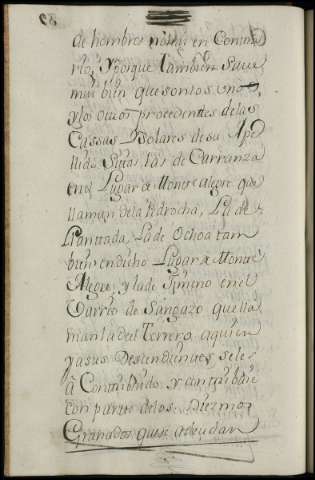 de hombres
rlo, y Porque tambien save
mui bien que son los unos,
y los otros procedentes de las
Cassas y Solares de su Ape
llido Sitas las de Carranza
en el Lugar de Monte Alegre que
llaman de la Pedrocha, La de
Llantada, La de Ochoa tam
bien en dicho Lugar de Monte
Alegre, y la de Ximeno en el
Varrio de Sangazo que lla
man la del Terrero, a quien
y a sus Descendientes, se le
à Contribuido, y contribuie
con parte de los Diezmos
Granados que se adeudan